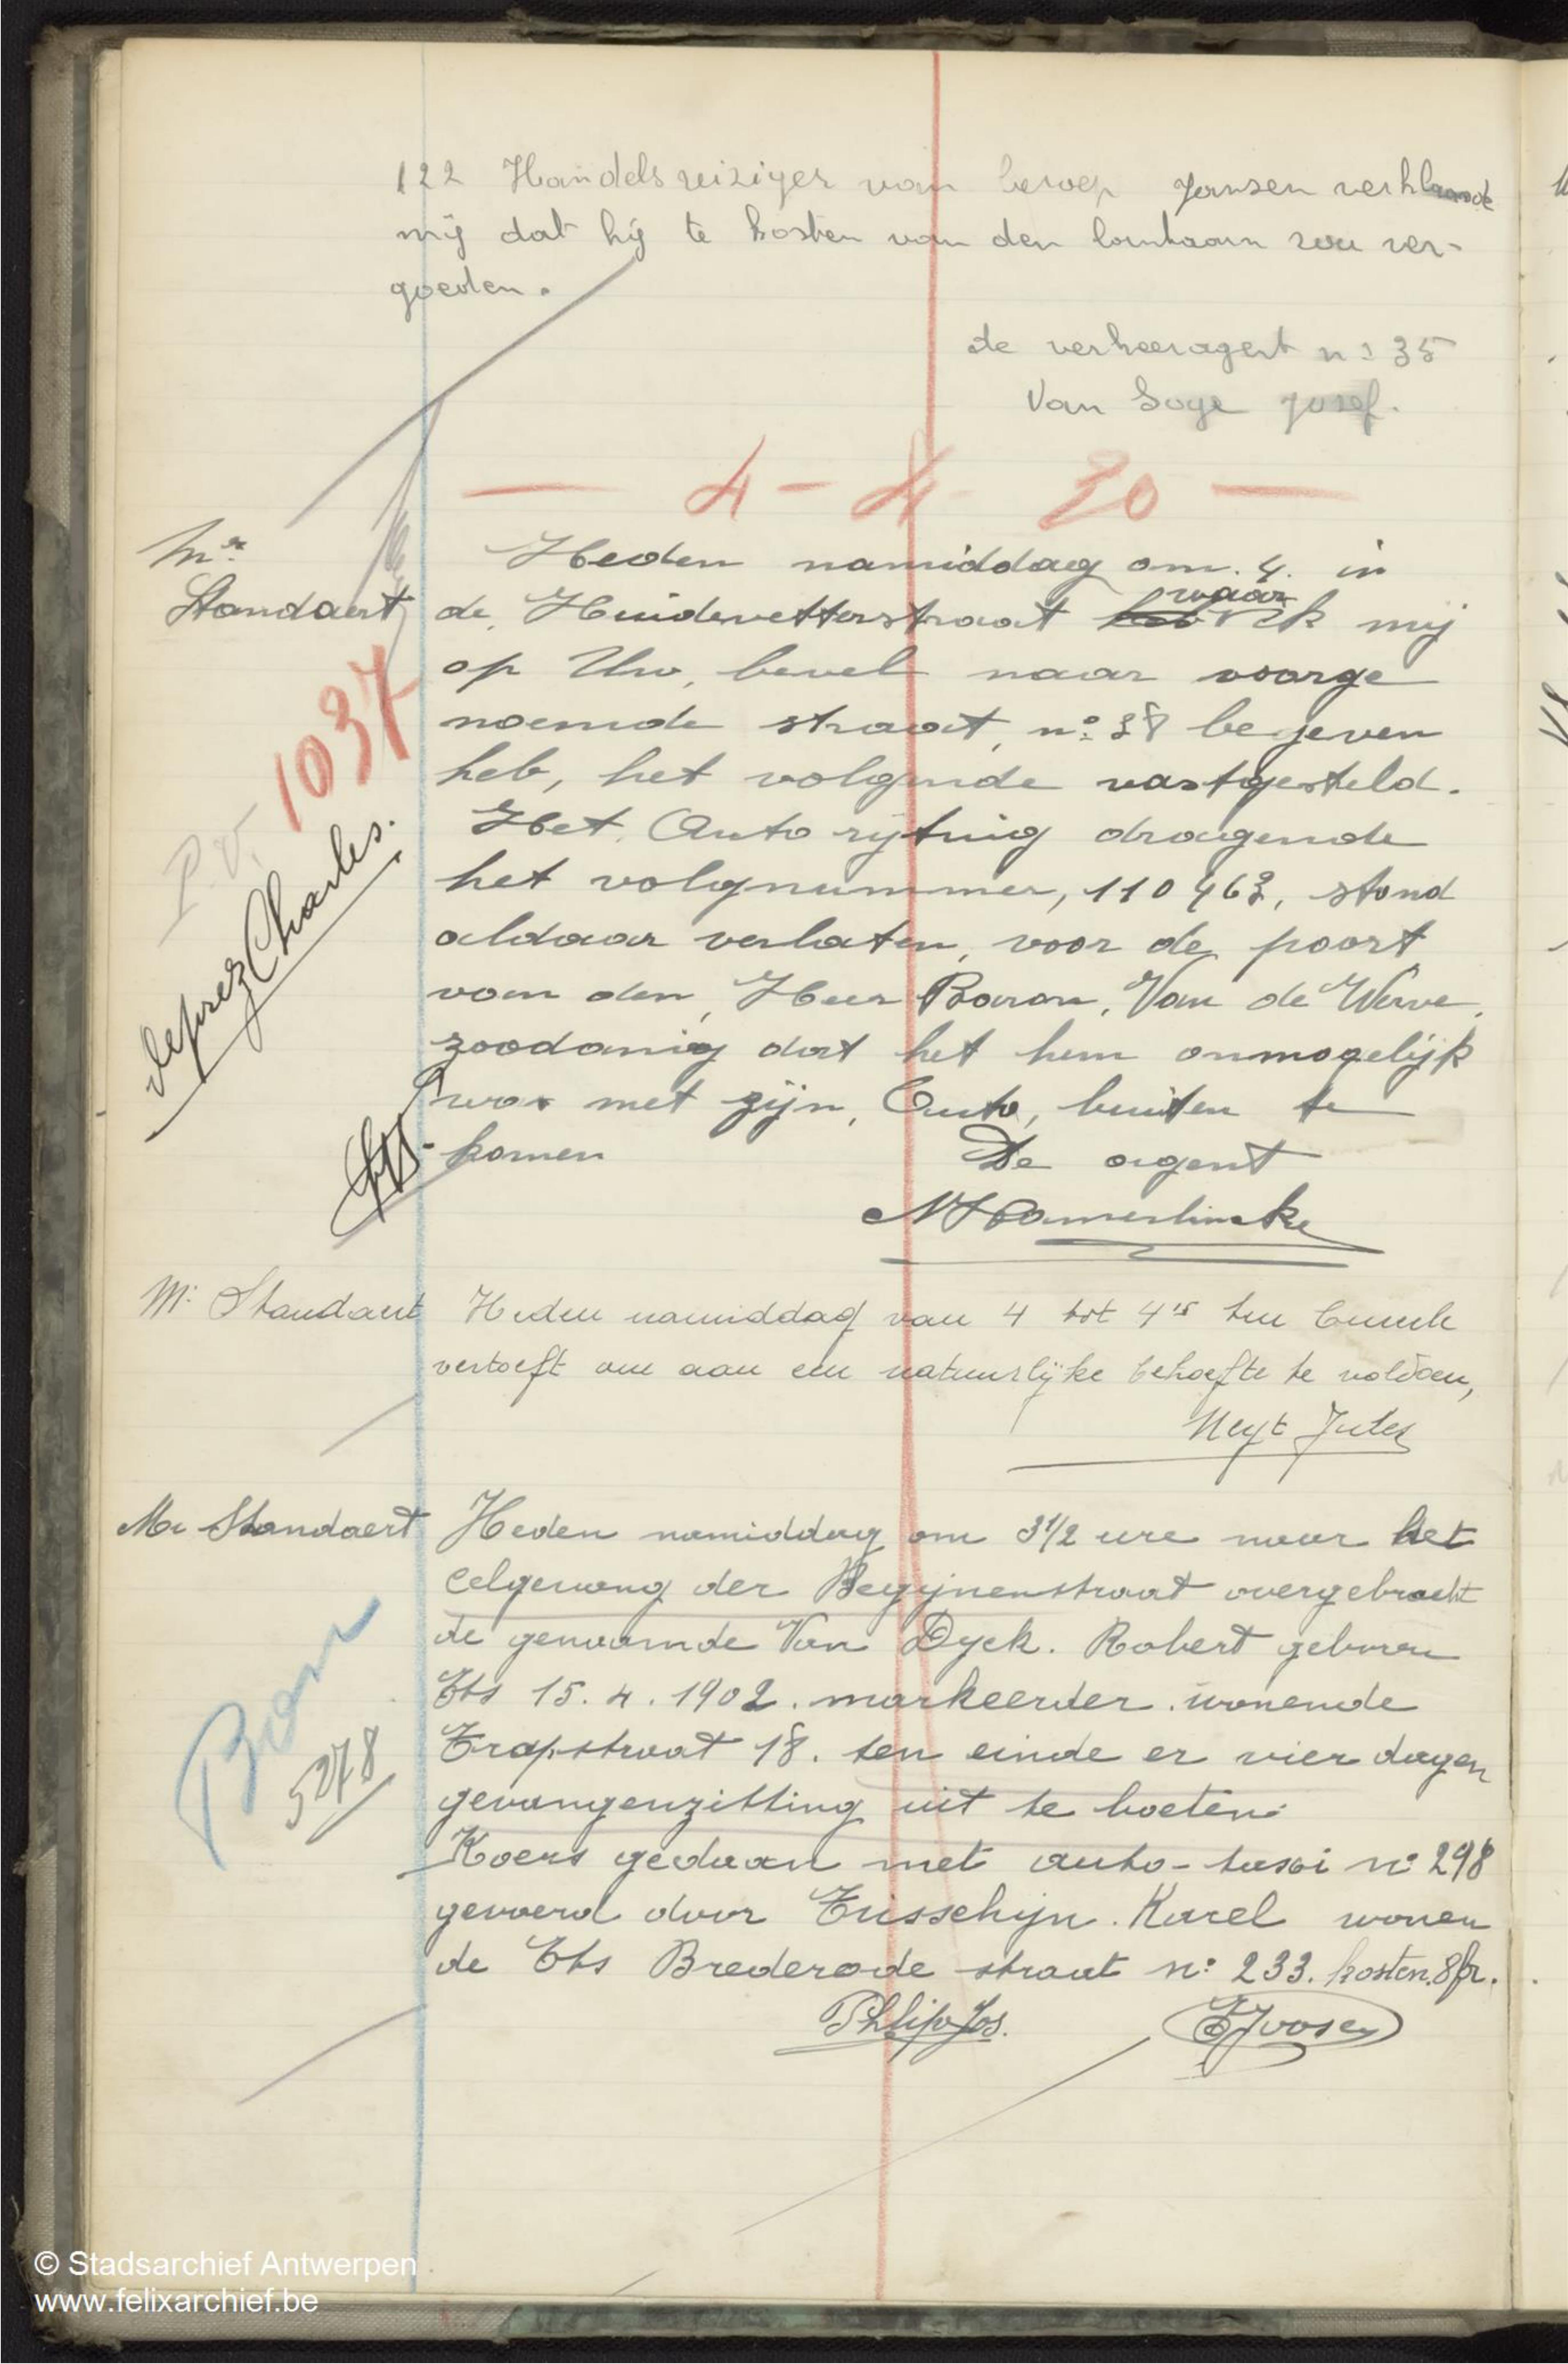 122 Handelsreiziger van beroep Jansen verklaarde
mij dat hij te kosten van den lantaarn zou ver-
goeden.
de verkeeragent n: 35
Van Joze Jozef.
— 4 - 4 30 —
Mr
Standaert
Heden namiddag om. 4. in
de, Huidevetterstraat waar ik mij
op Uw, bevel naar voorge
noemde straat, n:° 38 begeven
heb, het volgende vastgesteld.
Het, Auto rijtuig dragende
het volgnummer, 110463, stond
aldaar verlaten, voor de poort
van den, Heer Baron, Van de Werve,
zoodanig dat het hem onmogelijk
was met zijn, Auto, buiten te
komen
De agent
P.V. 1037
deprez Charles.
M: Standaert
Heden namiddag van 4 tot 4 15 ten bureele
vertoeft om aan een natuurlijke behoefte te voldoen,
Neyt Jules
Mr Standaert
Heden namiddag om 3 1/2 ure naar het
celgevang der Begijnenstraat overgebracht
de genaamde Van Dyck. Robert geboren
Ets 15. 4. 1902. markeerder. wonende
Trapstraat 18. ten einde er vier dagen
gevangenzitting uit te boeten.
Koers gedaan met auto-taxi n° 298
gevoerd door Trisschijn. Karel wonen
de Ets Brederode straat n: 233. kosten. 8 fr.
5278
Philip Jos.
Joosen
© Stadsarchief Antwerpen
www.felixarchief.be